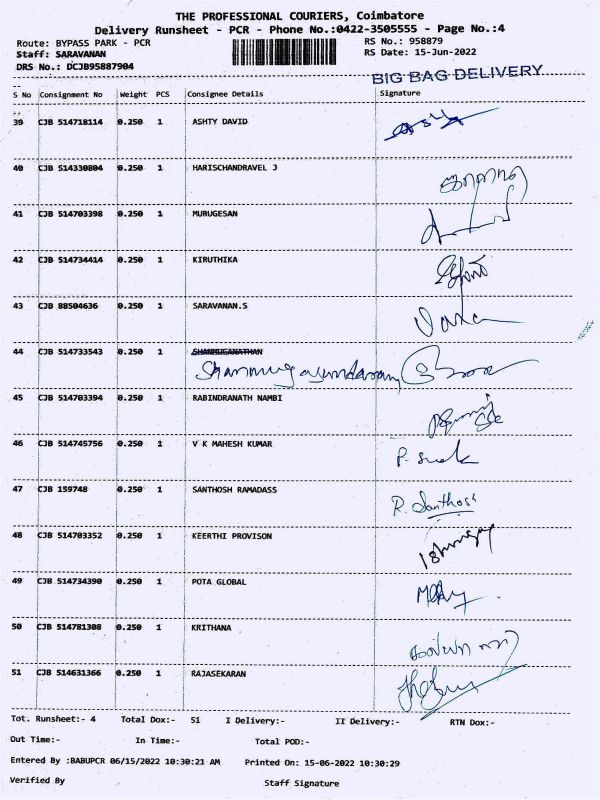 THE PROFESSIONAL COURIERS, Coimbatore
Delivery Runsheet - PCR - Phone No.:0422-3505555 - Page No.:4
Route: BYPASS PARK - PCR RS No.: 958879
Staff: SARAVANAN RS Date: 15-Jun-2022
DRS No.: DCJB95887904
BIG BAG DELIVERY
S No Consignment No Weight PCS Consignee Details Signature
39 CJB 514718114 0.250 1 ASHTY DAVID
40 CJB 514330804 0.250 1 HARISCHANDRAVEL J
41 CJB 514703398 0.250 1 MURUGESAN
42 CJB 514734414 0.250 1 KIRUTHIKA
43 CJB 88504636 0.250 1 SARAVANAN.S
44 CJB 514733543 0.250 1 SHANMUGANATHAN
Shanmugasundaram
45 CJB 514703394 0.250 1 RABINDRANATH NAMBI
46 CJB 514745756 0.250 1 V K MAHESH KUMAR
47 CJB 159748 0.250 1 SANTHOSH RAMADASS
R. Santhosh
48 CJB 514703352 0.250 1 KEERTHI PROVISON
49 CJB 514734390 0.250 1 POTA GLOBAL
50 CJB 514781308 0.250 1 KRITHANA
51 CJB 514631366 0.250 1 RAJASEKARAN
Tot. Runsheet:- 4 Total Dox:- 51 I Delivery:- II Delivery:- RTN Dox:-
Out Time:- In Time:- Total POD:-
Entered By :BABUPCR 06/15/2022 10:30:21 AM Printed On: 15-06-2022 10:30:29
Verified By Staff Signature